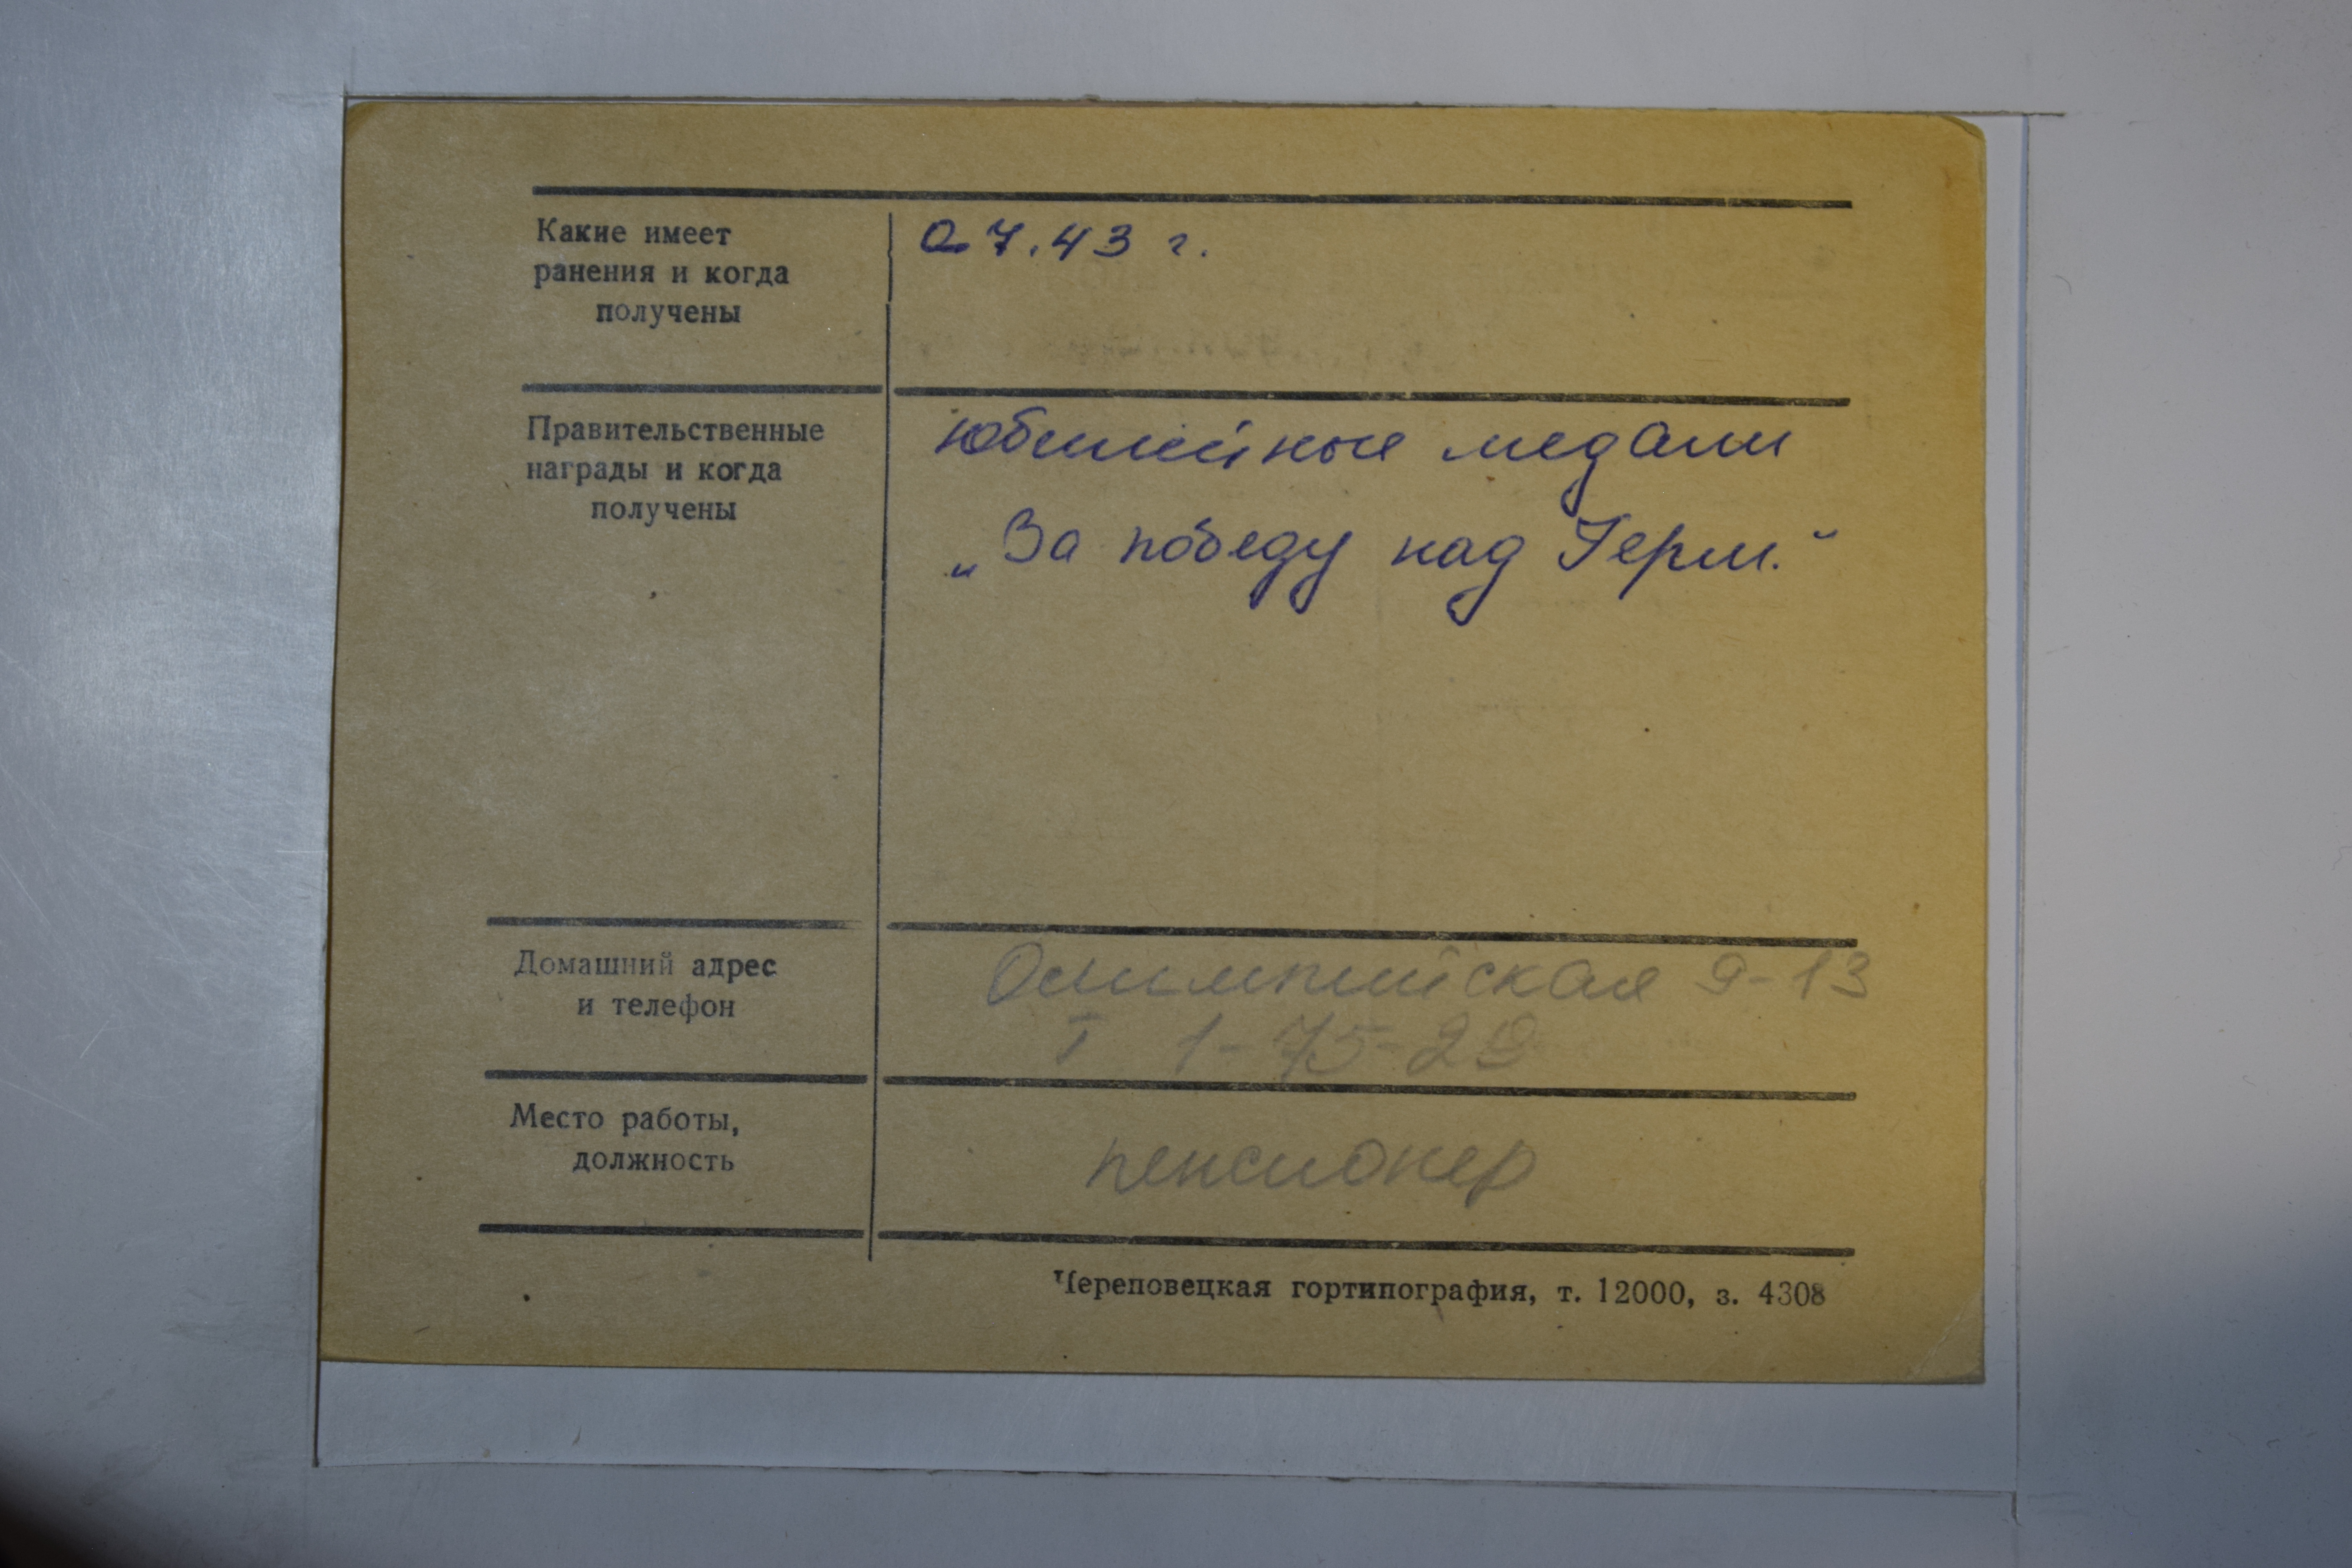 Какие имеет
ранения и когда
получены
07.43 г.
Правительственные
награды и когда
получены
юбилейные медали
„За победу над Герм."
Домашний адрес
и телефон
Олимпийская 9-13
Т 1-75-29
Место работы,
должность
пенсионер
Череповецкая гортипография, т. 12000, з. 4308